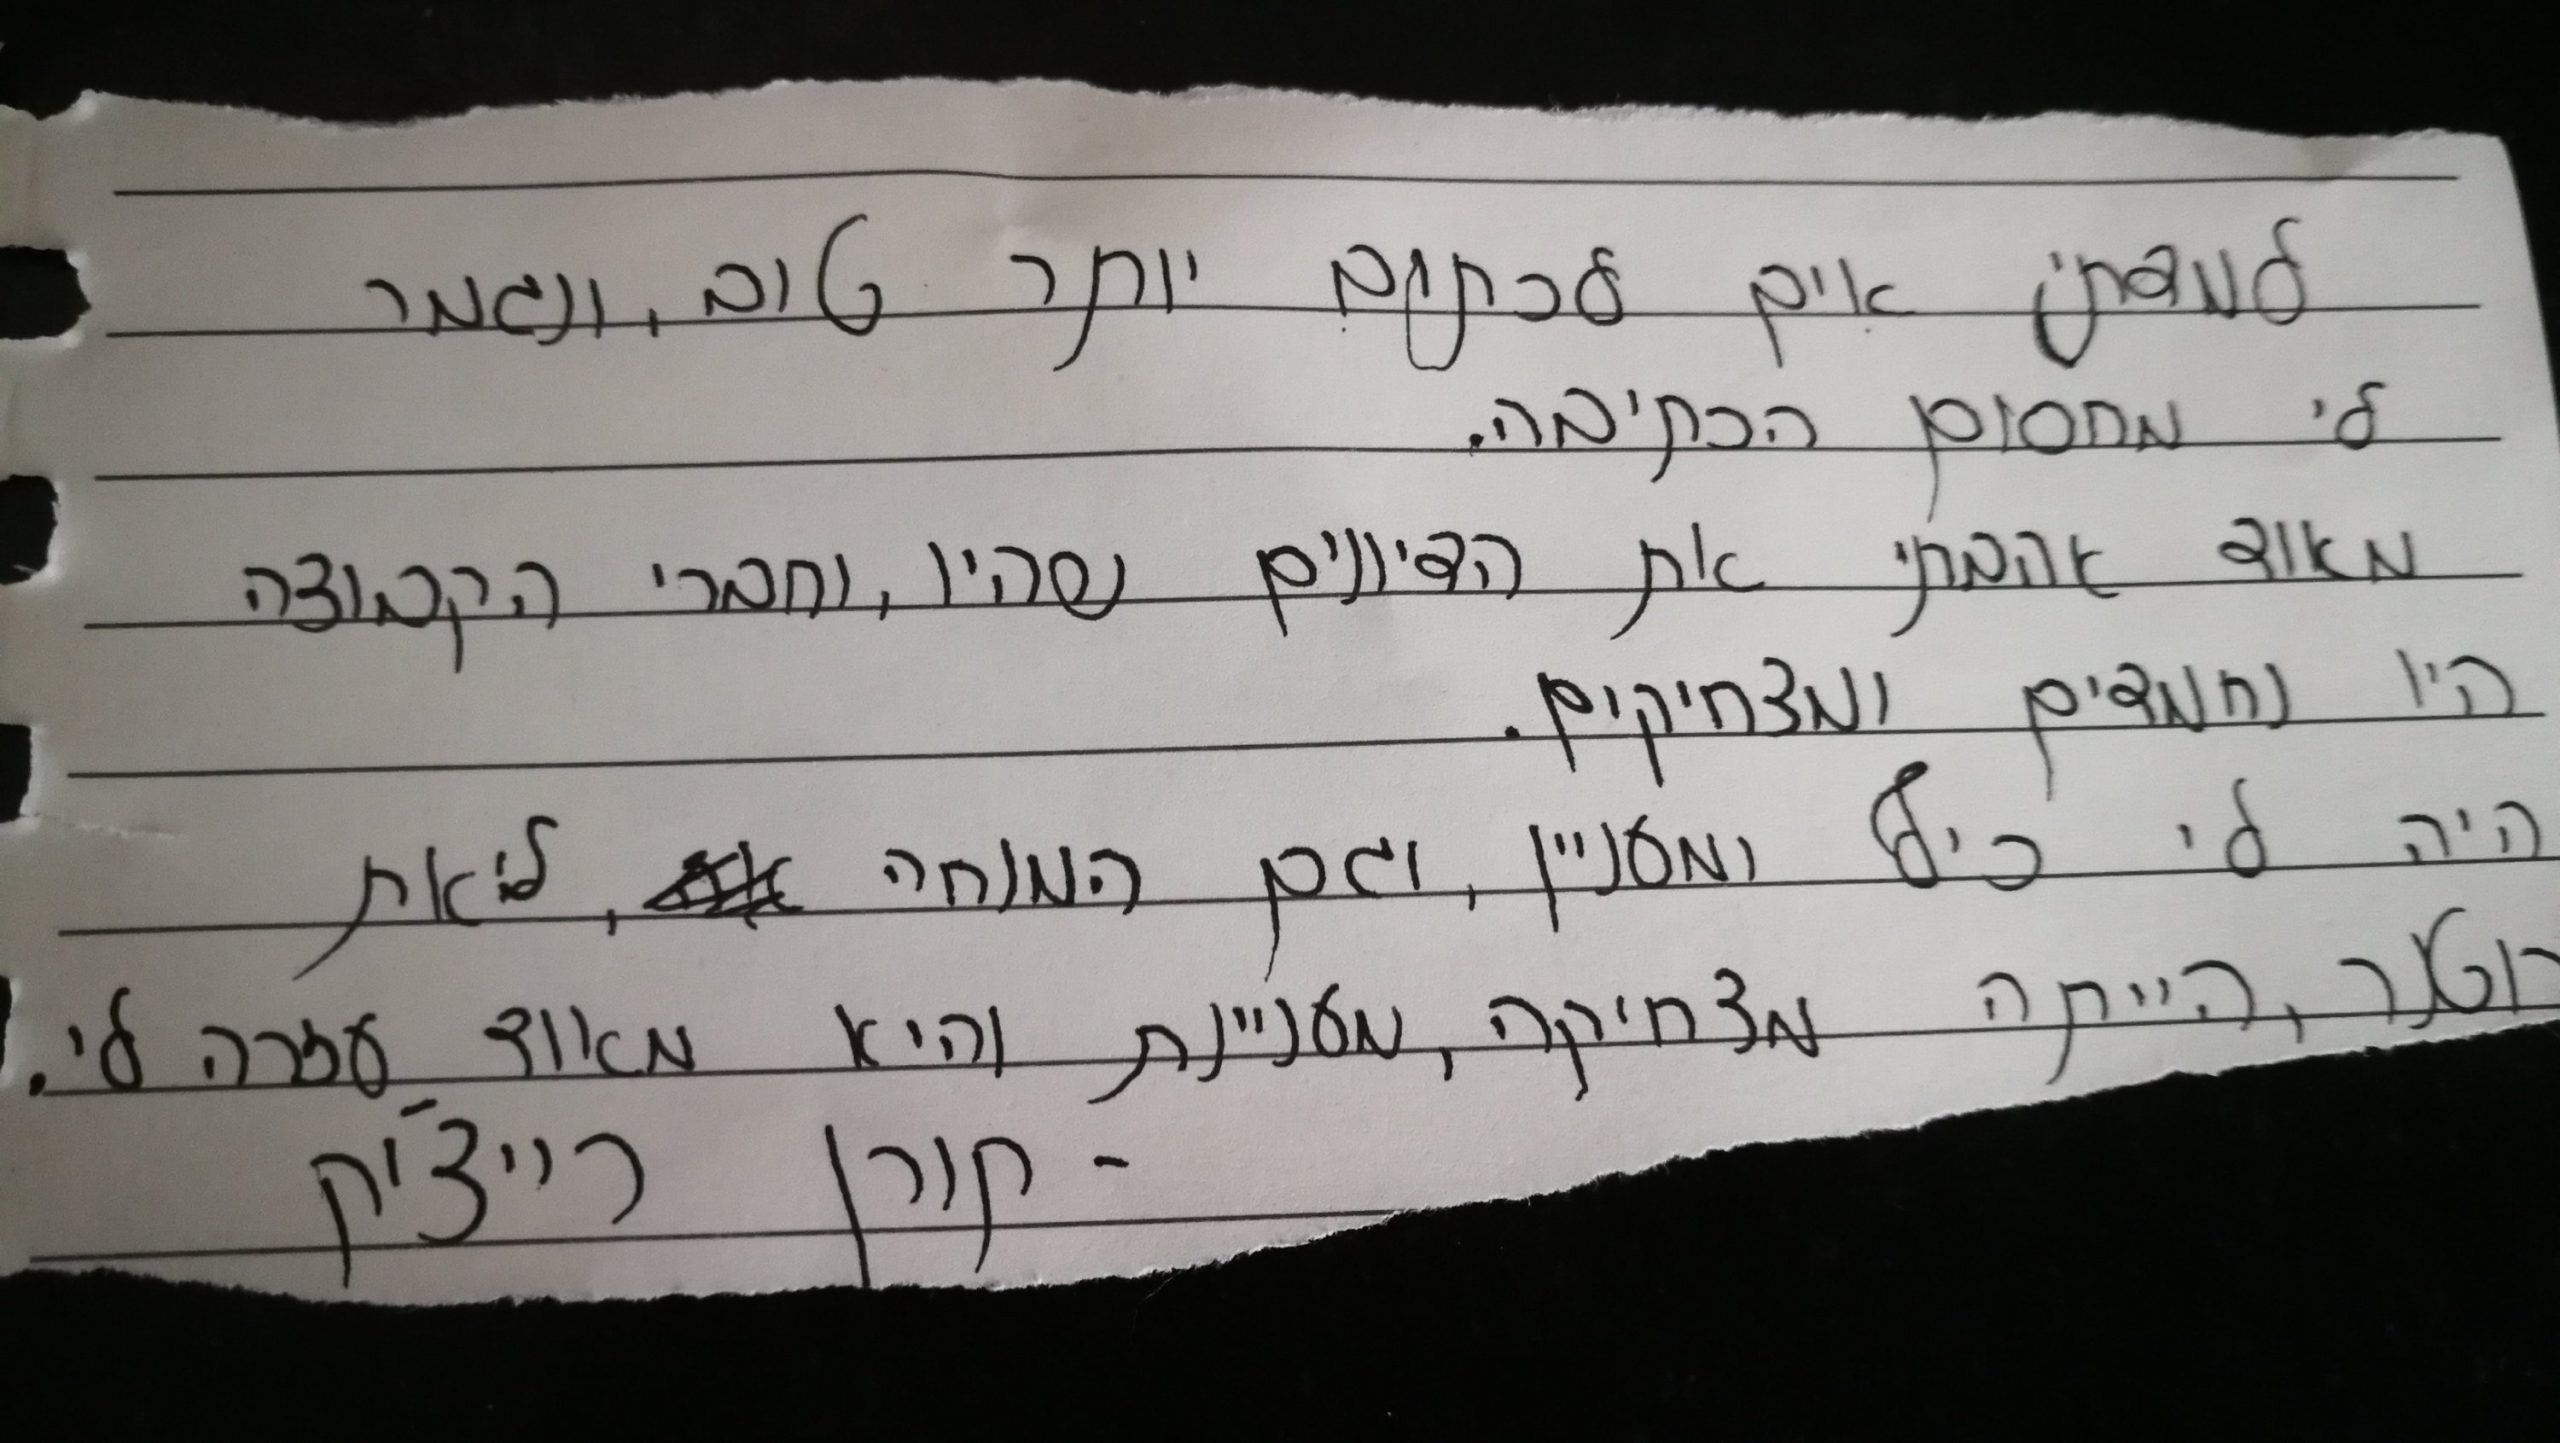 למדתי איך לכתוב יותר טוב, ונגמר
לי מחסום הכתיבה.
מאוד אהבתי את הדיונים שהיו, וחברי הקבוצה
היו נחמדים ומצחיקים.
היה לי כיף ומעניין, וגם המנחה, ליאת
רוטנר, הייתה מצחיקה, מעניינת והיא מאוד עזרה לי.
- קורן רייצ'יק